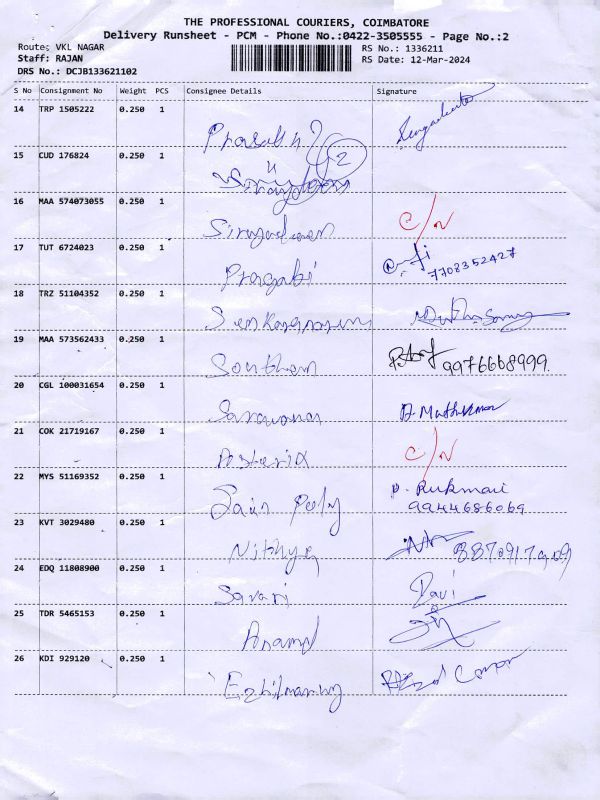 THE PROFESSIONAL COURIERS, COIMBATORE
Delivery Runsheet - PCM - Phone No.:0422-3505555 - Page No.:2
Route: VKL NAGAR RS No.: 1336211
Staff: RAJAN RS Date: 12-Mar-2024
DRS No.: DCJB133621102
S No Consignment No Weight PCS Consignee Details Signature
14 TRP 1505222 0.250 1
2
15 CUD 176824 0.250 1
16 MAA 574073055 0.250 1 C/N
17 TUT 6724023 0.250 1
Pragabi 7708352427
18 TRZ 51104352 0.250 1
19 MAA 573562433 0.250 1
Southern 9976668999.
20 CGL 100031654 0.250 1
Saravanan
21 COK 21719167 0.250 1 C/N
Asteria
22 MYS 51169352 0.250 1 P. Rukmani
Jain Poly 9944686069
23 KVT 3029480 0.250 1
Nithya
24 EDQ 11808900 0.250 1
Savari Ravi
25 TDR 5465153 0.250 1
Anand
26 KDI 929120 0.250 1
Ezhilmaran